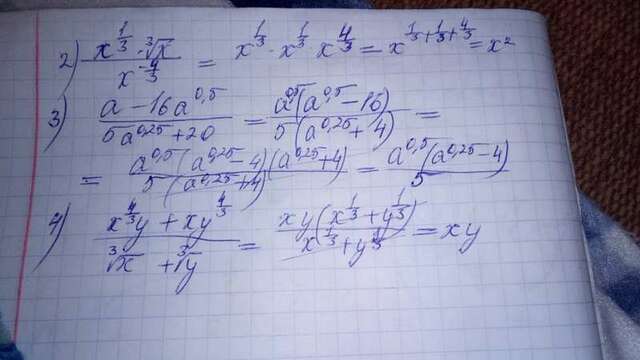 2) (x^{1/3} · ∛x) / x^{-4/3} = x^{1/3} · x^{1/3} · x^{4/3} = x^{1/3+1/3+4/3} = x²
3) (a - 16a^{0,5}) / (5a^{0,25} + 20) = a^{0,5}(a^{0,5} - 16) / 5(a^{0,25} + 4) =
= a^{0,5}(a^{0,25} - 4)(a^{0,25} + 4) / 5(a^{0,25} + 4) = a^{0,5}(a^{0,25} - 4) / 5
4) (x^{4/3}y + xy^{4/3}) / (∛x + ∛y) = xy(x^{1/3} + y^{1/3}) / (x^{1/3} + y^{1/3}) = xy